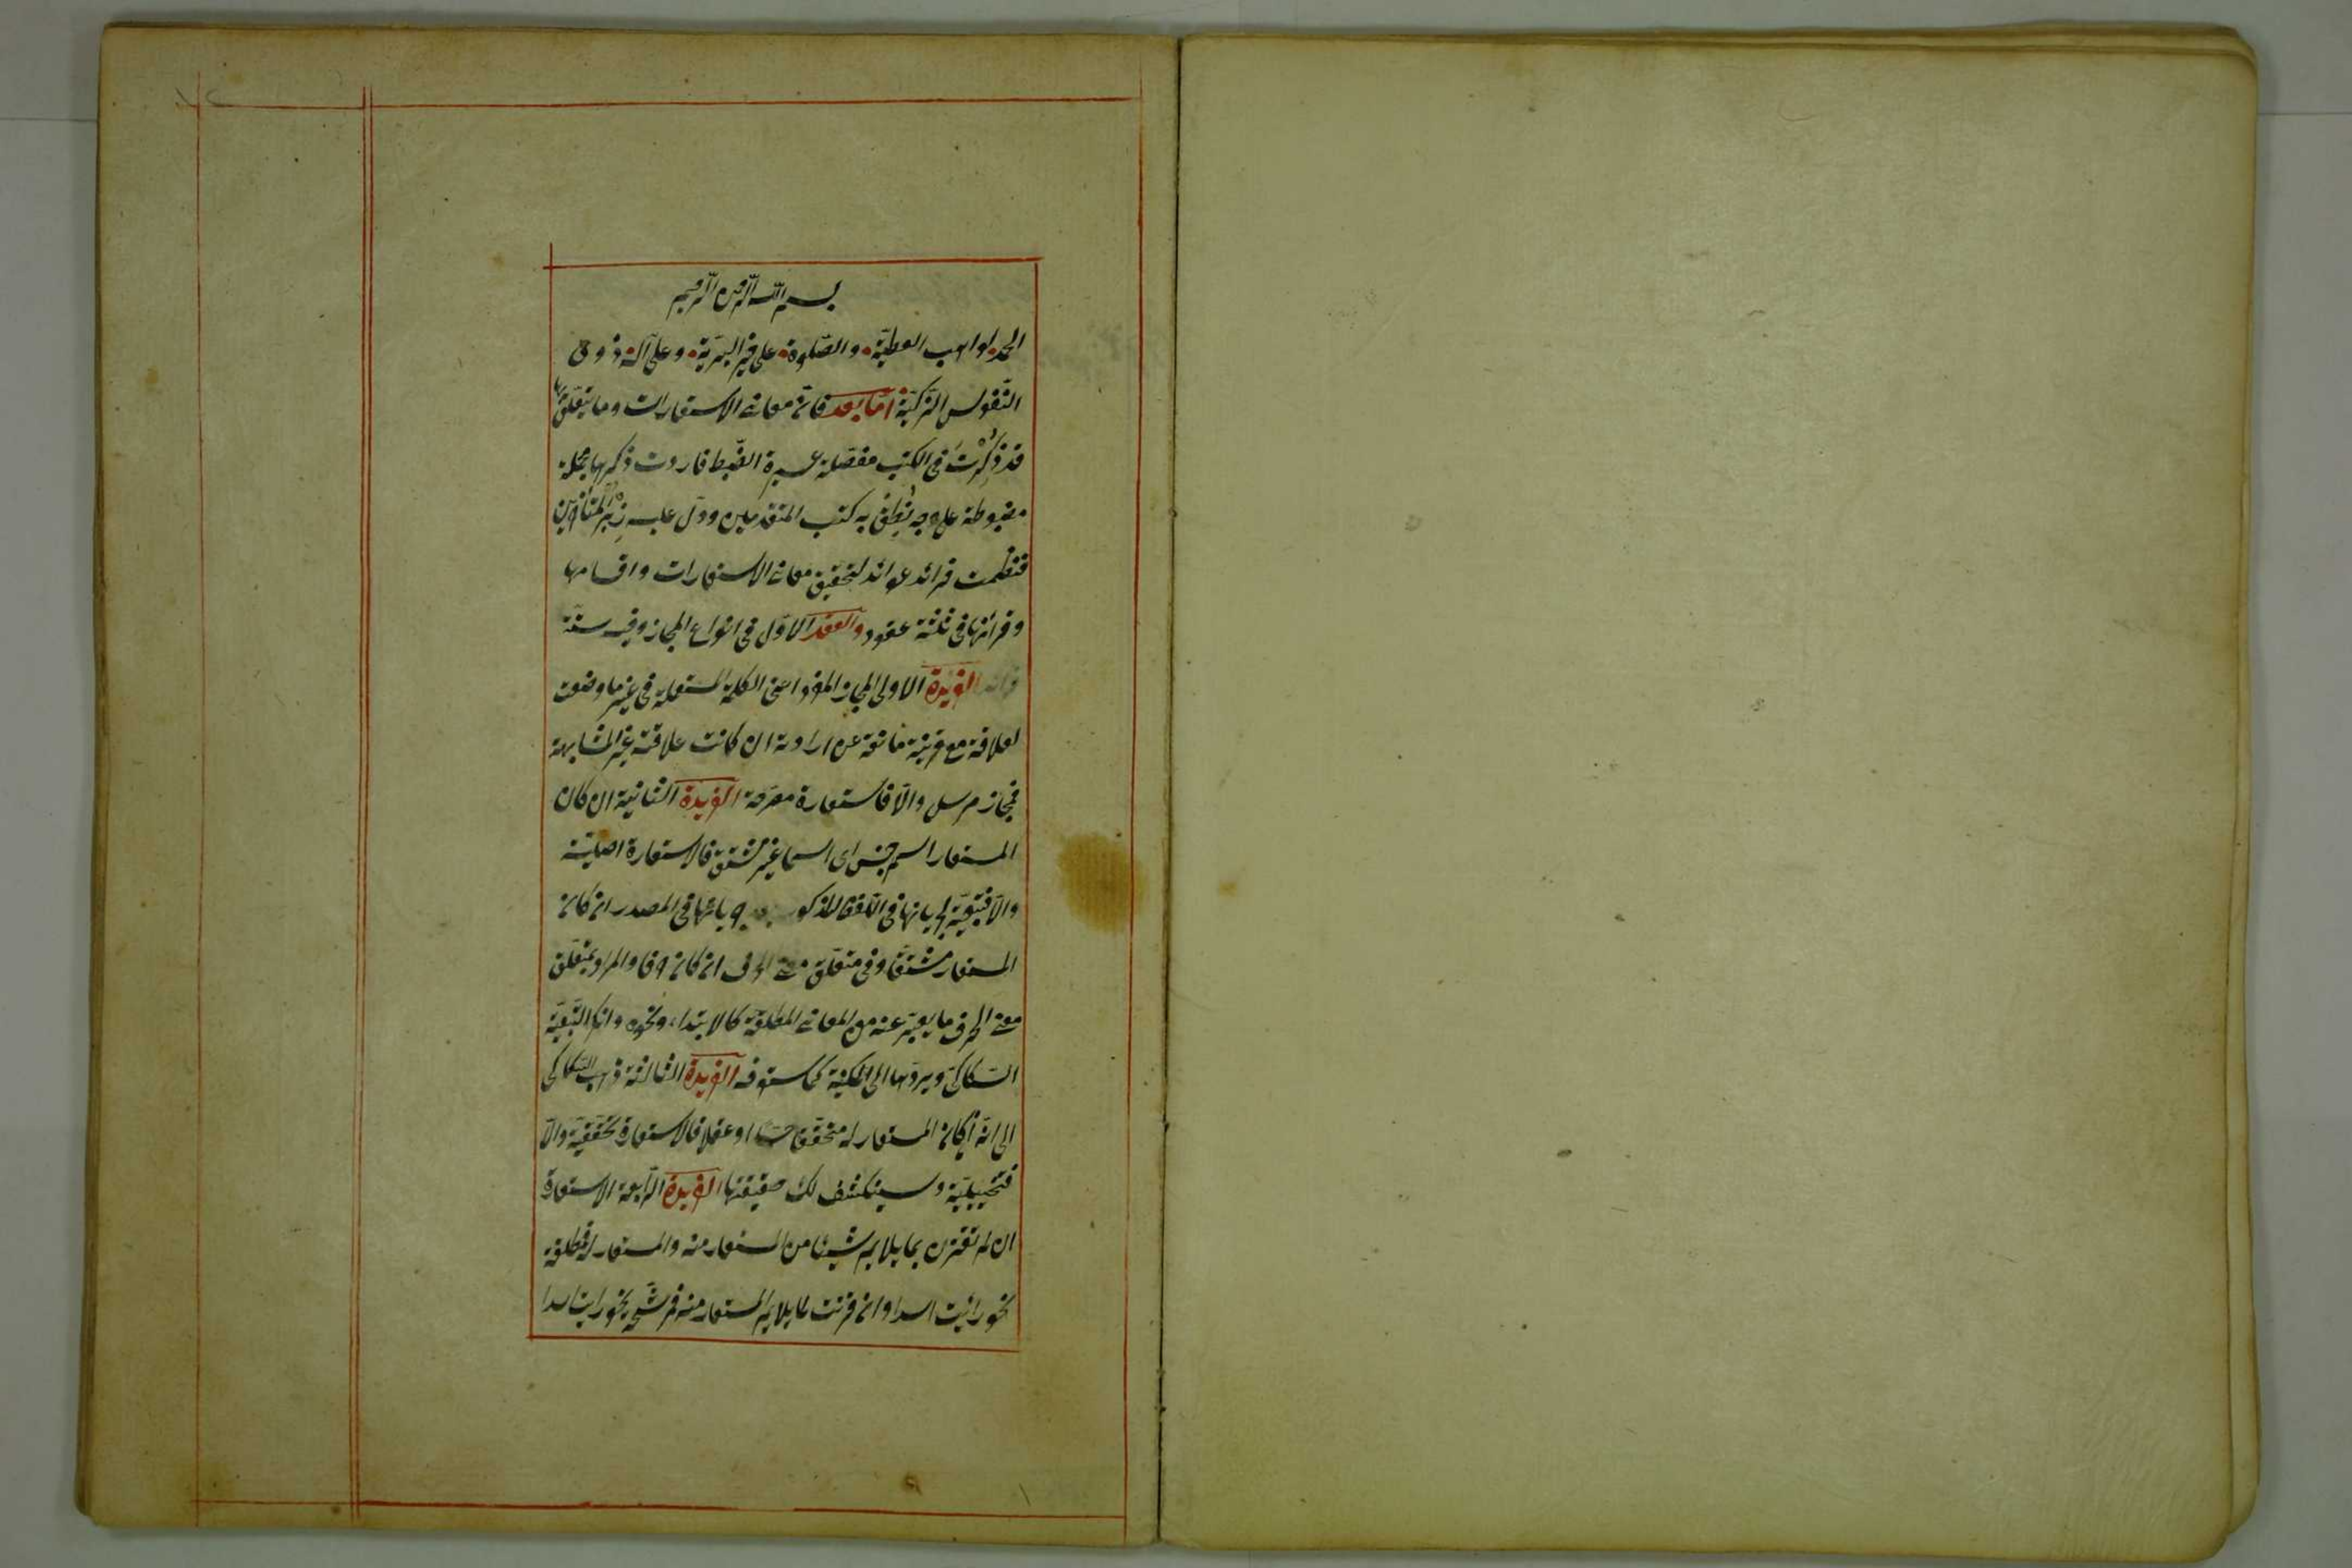 بسم الله الرحمن الرحيم
الحمد لواهب العطيّة والصّلوة على خير البريّة وعلى آله ذوى
النّفوس الزكيّة امّا بعد فان معانى الاستعارات وما يتعلّق بها
قد ذُكِرَتْ فى الكتب مفصّلة عسيرة الضّبط فاردت ذكرها مجملة
مضبوطة على وجه نُطِقَ به كتب المتقدمين ودلّ عليه زُبُر المتأخرين
فنظمت فرائد عوائد لتحقيق معانى الاستعارات واقسامها
وقرائنها فى ثلثة عقود والعقد الاوّل فى انواع المجاز وفيه ستة
فرائد الفريدة الاولى المجاز المفرد اعنى الكلمة المستعملة فى غير ما وضعت
لعلاقة مع قرينة مانعة عن ارادته ان كانت علاقته غير المشابهة
فمجاز مرسل والّا فاستعارة مصرّحة الفريدة الثانية ان كان
المستعار اسم جنس اى اسما غير مشتق فالاستعارة اصلية
والّا فتبعيّة لجريانها فى اللفظ المذكور بعد جريانها فى المصدر ان كان
المستعار مشتقا وفى متعلّق معنى الحرف ان كان حرفا والمراد بمتعلّق
معنى الحرف ما يعبّر عنه من المعانى المطلقة كالابتداء ونحوه وانكر التبعيّة
السّكاكىّ ويردّها الى المكنية كما ستعرفه الفريدة الثالثة ذهب السّكاكى
الى انّه ان كان المستعار له متحققا حسّا او عقلا فالاستعارة تحقيقيّة والّا
فتخييليّة وسينكشف لك حقيقتها الفريدة الرّابعة الاستعارة
ان لم تقترن بما يلايم شيئا من المستعار منه والمستعار له فمطلقة
نحو رايت اسدا وان قرنت بما يلايم المستعار منه فمرشّحة نحو رايت اسدا